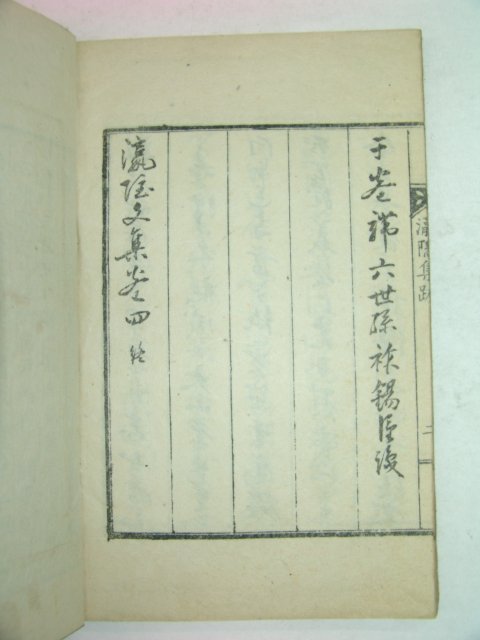 瀛隱集跋
二
于卷端六世孫祚錫謹跋
瀛隱文集卷四終